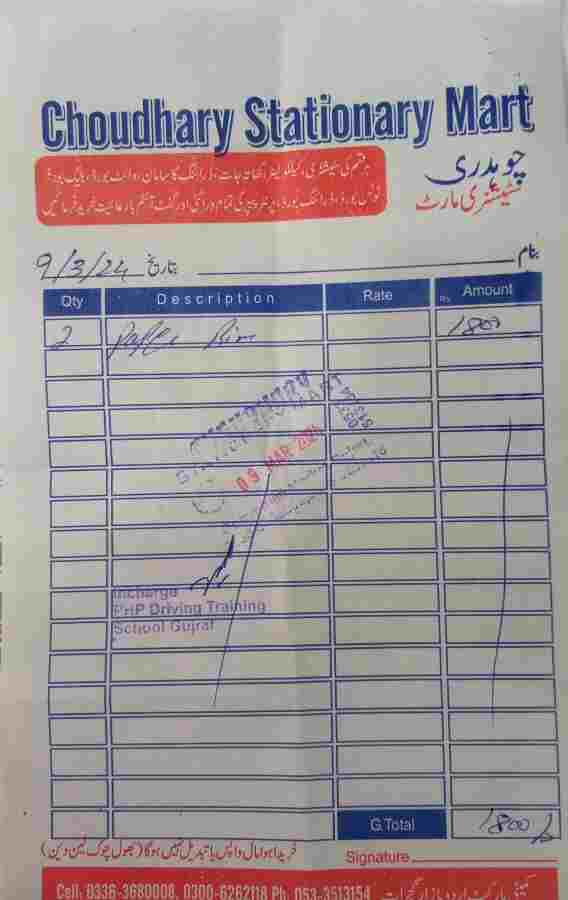 Choudhary Stationary Mart
چوہدری
سٹیشنری مارٹ
ہر قسم کی سٹیشنری، کیلکولیٹر، کھاتہ جات، ڈرائنگ کا سامان، وائٹ بورڈ، بلیک بورڈ
نوٹس بورڈ، ڈرائنگ بورڈ، پرنٹر پیپر کی تمام ورائٹی اور گفٹ آئٹم بارعائیت خرید فرمائیں
بنام
تاریخ 9/3/24
Qty Description Rate Rs. Amount
2 Paper Rim 1800
09 MAR 2024
Incharge
PHP Driving Training
School Gujrat
G.Total 1800/-
خریدا ہوا مال واپس یا تبدیل نہیں ہو گا (بھول چوک لین دین)
Signature
کمپنی مارکیٹ اردو بازار گجرات
Cell: 0336-3680008, 0300-6262118 Ph: 053-3513154